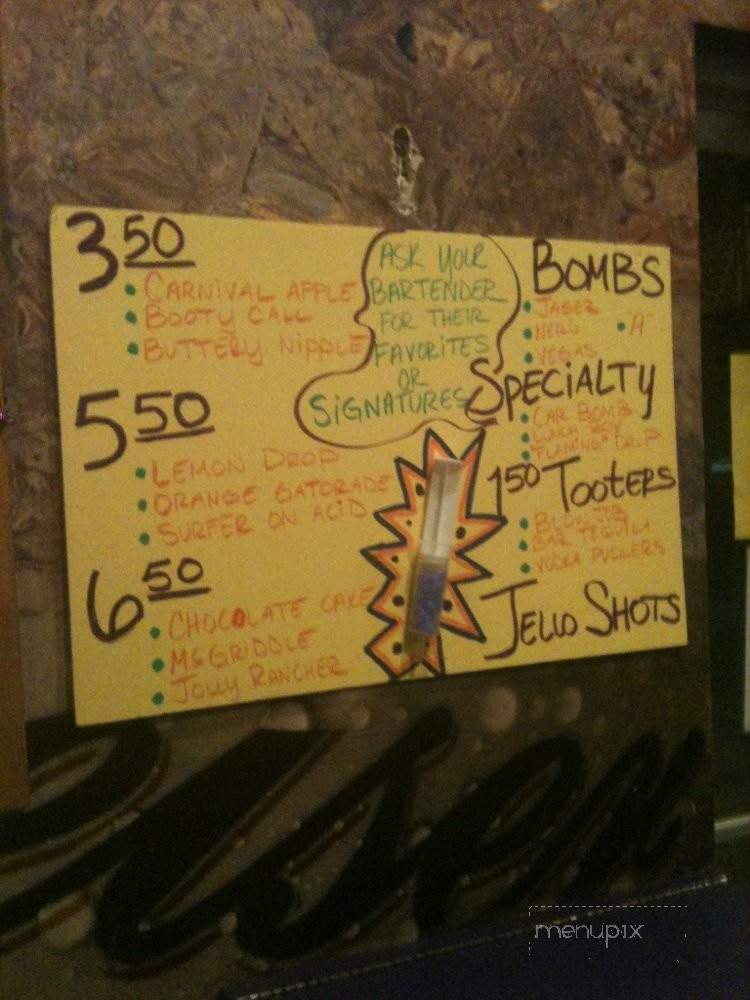 3 50
• CARNIVAL APPLE
• BOOTY CALL
• BUTTERY NIPPLE
5 50
• LEMON DROP
• ORANGE GATORADE
• SURFER ON ACID
6 50
• CHOCOLATE CAKE
• MCGRIDDLE
• JOLLY RANCHER
ASK YOUR
BARTENDER
FOR THEIR
FAVORITES
OR
SIGNATURES
BOMBS
• JAGER
• NERD • "A"
• VEGAS
SPECIALTY
• CAR BOMB
• LUNCH BOX
• "FLAMING" DR. P
1 50 TOOTERS
• BLOW JOB
• BAR TEQUILA
• VODKA PUCKERS
JELLO SHOTS
menupix